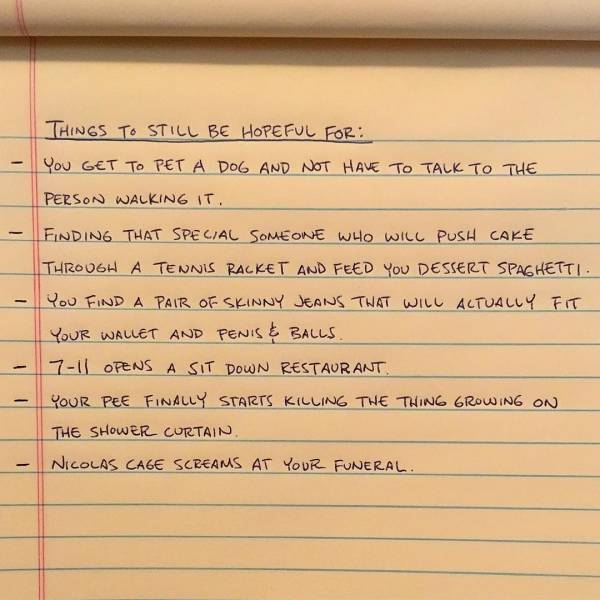 THINGS TO STILL BE HOPEFUL FOR:
- YOU GET TO PET A DOG AND NOT HAVE TO TALK TO THE
PERSON WALKING IT.
- FINDING THAT SPECIAL SOMEONE WHO WILL PUSH CAKE
THROUGH A TENNIS RACKET AND FEED YOU DESSERT SPAGHETTI.
- YOU FIND A PAIR OF SKINNY JEANS THAT WILL ACTUALLY FIT
YOUR WALLET AND PENIS & BALLS.
- 7-11 OPENS A SIT DOWN RESTAURANT.
- YOUR PEE FINALLY STARTS KILLING THE THING GROWING ON
THE SHOWER CURTAIN.
- NICOLAS CAGE SCREAMS AT YOUR FUNERAL.